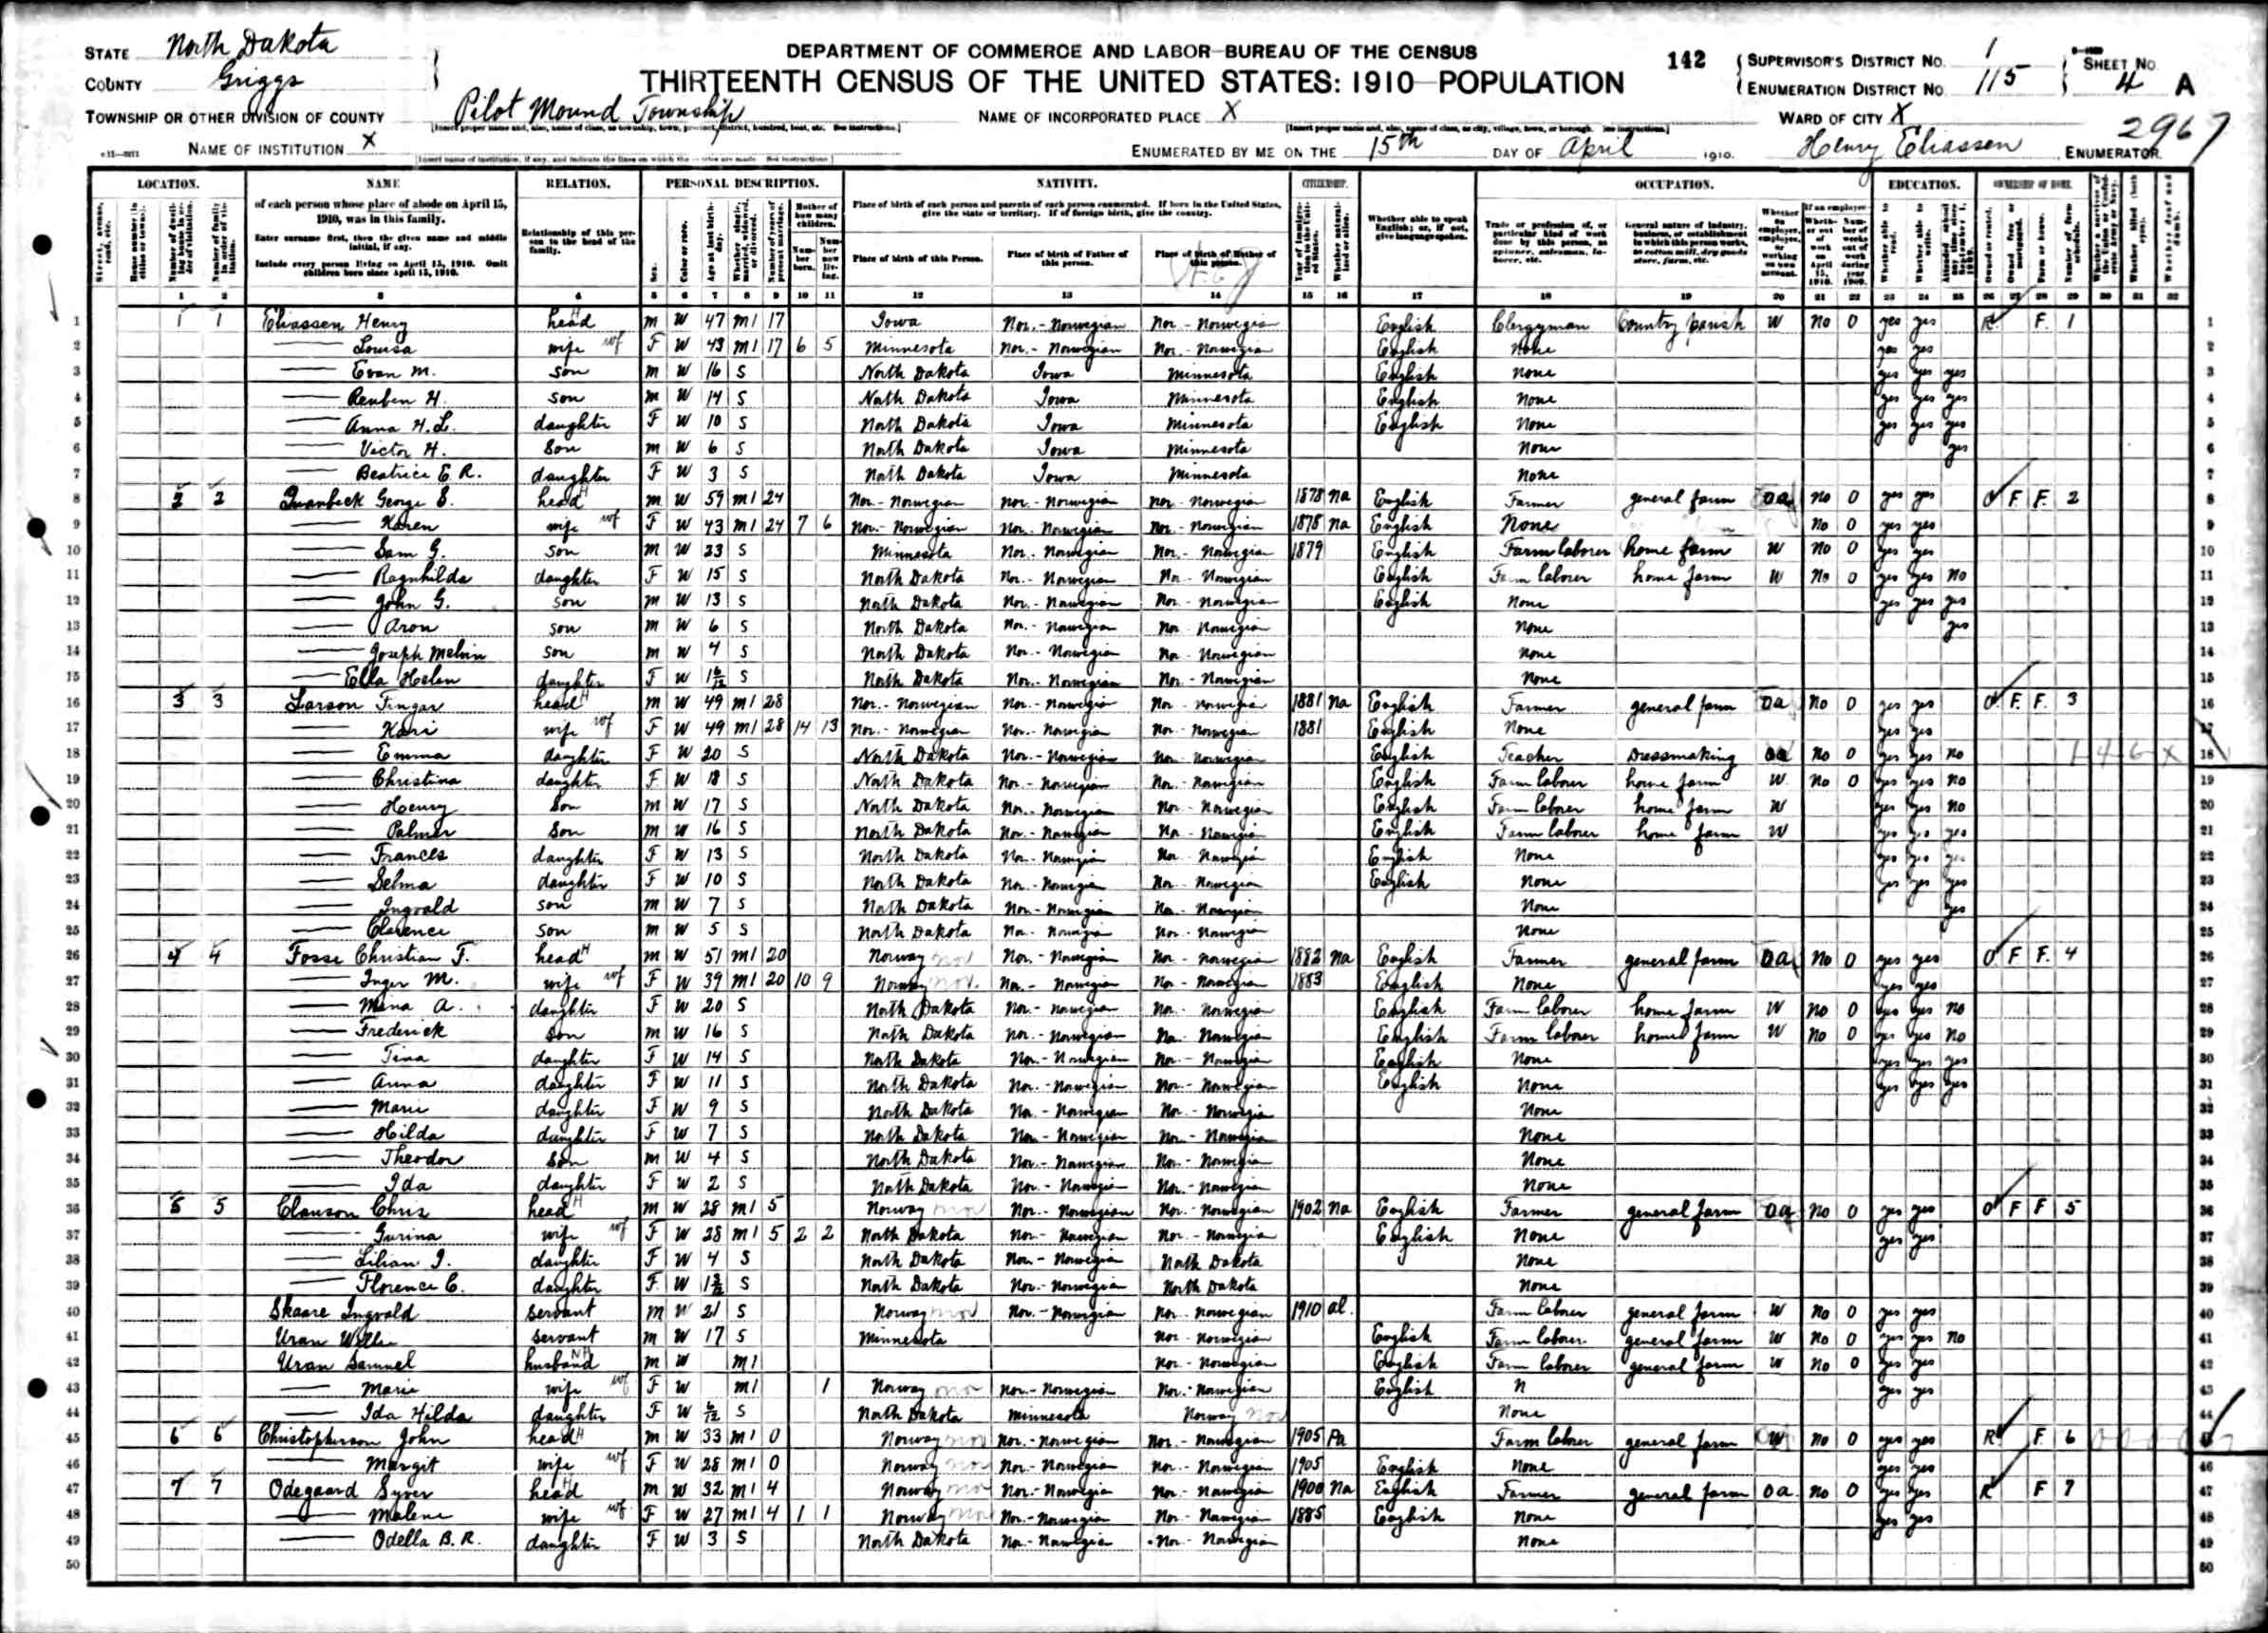 STATE North Dakota
COUNTY Griggs
TOWNSHIP OR OTHER DIVISION OF COUNTY Pilot Mound Township
NAME OF INSTITUTION X
DEPARTMENT OF COMMERCE AND LABOR—BUREAU OF THE CENSUS
THIRTEENTH CENSUS OF THE UNITED STATES: 1910—POPULATION
NAME OF INCORPORATED PLACE X
ENUMERATED BY ME ON THE 15th DAY OF April 1910.
142
SUPERVISOR'S DISTRICT No. 1
ENUMERATION DISTRICT No. 115
SHEET No. 4 A
WARD OF CITY X
2967
Henry Eliassen, ENUMERATOR.
LOCATION. NAME RELATION. PERSONAL DESCRIPTION. NATIVITY. CITIZENSHIP. OCCUPATION. EDUCATION. OWNERSHIP OF HOME.
of each person whose place of abode on April 15, 1910, was in this family.
Enter surname first, then the given name and middle initial, if any.
Include every person living on April 15, 1910. Omit children born since April 15, 1910.
Relationship of this person to the head of the family.
Place of birth of each person and parents of each person enumerated. If born in the United States, give the state or territory. If of foreign birth, give the country.
Place of birth of this Person. Place of birth of Father of this person. Place of birth of Mother of this person.
Whether able to speak English; or, if not, give language spoken.
1 2 3 4 5 6 7 8 9 10 11 12 13 14 15 16 17 18 19 20 21 22 23 24 25 26 27 28 29 30 31 32
1 1 1 Eliassen Henry head m W 47 m1 17 Iowa Nor.-Norwegian Nor-Norwegian English Clergyman Country parish W no 0 yes yes R F. 1
2 Louisa wife F W 43 m1 17 6 5 Minnesota Nor.-Norwegian Nor.-Norwegian English None yes yes
3 Evan M. son m W 16 S North Dakota Iowa Minnesota English none yes yes yes
4 Reuben H. son m W 14 S North Dakota Iowa Minnesota English none yes yes yes
5 Anna H. L. daughter F W 10 S North Dakota Iowa Minnesota English None yes yes yes
6 Victor H. son m W 6 S North Dakota Iowa Minnesota None yes
7 Beatrice E. R. daughter F W 3 S North Dakota Iowa Minnesota none
8 2 2 Quanbeck George S. head m W 59 m1 24 Nor-Norwegian Nor-Norwegian Nor-Norwegian 1878 na English Farmer general farm oa no 0 yes yes O F. F. 2
9 Karen wife F W 43 m1 24 7 6 Nor-Norwegian Nor-Norwegian Nor-Norwegian 1878 na English None no 0 yes yes
10 Sam G. son m W 23 S Minnesota Nor-Norwegian Nor-Norwegian 1879 English Farm laborer home farm W no 0 yes yes
11 Ragnhilda daughter F W 15 S North Dakota Nor-Norwegian Nor-Norwegian English Farm laborer home farm W no 0 yes yes no
12 John G. son m W 13 S North Dakota Nor-Norwegian Nor-Norwegian English None yes yes yes
13 Aron son m W 6 S North Dakota Nor-Norwegian Nor-Norwegian None yes
14 Joseph Melvin son m W 4 S North Dakota Nor-Norwegian Nor-Norwegian none
15 Ella Helen daughter F W S North Dakota Nor-Norwegian Nor-Norwegian None
16 3 3 Larson Fingar head m W 49 m1 28 Nor-Norwegian Nor-Norwegian Nor-Norwegian 1881 na English Farmer general farm oa no 0 yes yes O F. F. 3
17 Kari wife F W 49 m1 28 14 13 Nor-Norwegian Nor-Norwegian Nor-Norwegian 1881 English None yes yes
18 Emma daughter F W 20 S North Dakota Nor-Norwegian Nor-Norwegian English Teacher Dressmaking oa no 0 yes yes no
19 Christina daughter F W 18 S North Dakota Nor-Norwegian Nor-Norwegian English Farm laborer home farm W no 0 yes yes no
20 Henry Son m W 17 S North Dakota Nor-Norwegian Nor-Norwegian English Farm laborer home farm W yes yes no
21 Palmer Son m W 16 S North Dakota Nor-Norwegian Nor-Norwegian English Farm laborer home farm W yes yes yes
22 Frances daughter F W 13 S North Dakota Nor-Norwegian Nor-Norwegian English None yes yes yes
23 Selma daughter F W 10 S North Dakota Nor-Norwegian Nor-Norwegian English None yes yes yes
24 Ingvald son m W 7 S North Dakota Nor-Norwegian Nor-Norwegian None yes
25 Clarence son m W 5 S North Dakota Nor-Norwegian Nor-Norwegian None
26 4 4 Fosse Christian T. head m W 51 m1 20 Norway Nor-Norwegian Nor-Norwegian 1882 na English Farmer general farm oa no 0 yes yes O F F. 4
27 Inger M. wife F W 39 m1 20 10 9 Norway Nor-Norwegian Nor-Norwegian 1883 English None yes yes
28 Mina A. daughter F W 20 S North Dakota Nor-Norwegian Nor-Norwegian English Farm laborer home farm W no 0 yes yes no
29 Frederick son m W 16 S North Dakota Nor-Norwegian Nor-Norwegian English Farm laborer home farm W no 0 yes yes no
30 Tina daughter F W 14 S North Dakota Nor-Norwegian Nor-Norwegian English None yes yes yes
31 Anna daughter F W 11 S North Dakota Nor-Norwegian Nor-Norwegian English None yes yes yes
32 Marie daughter F W 9 S North Dakota Nor-Norwegian Nor-Norwegian None
33 Hilda daughter F W 7 S North Dakota Nor-Norwegian Nor-Norwegian None
34 Theodor Son m W 4 S North Dakota Nor-Norwegian Nor-Norwegian None
35 Ida daughter F W 2 S North Dakota Nor-Norwegian Nor-Norwegian None
36 5 5 Clauson Chris head m W 28 m1 5 Norway Nor-Norwegian Nor-Norwegian 1902 na English Farmer general farm oa no 0 yes yes O F F 5
37 Gurina wife F W 28 m1 5 2 2 North Dakota Nor-Norwegian Nor-Norwegian English None yes yes
38 Lilian I. daughter F W 4 S North Dakota Nor-Norwegian North Dakota None
39 Florence C. daughter F W S North Dakota Nor-Norwegian North Dakota None
40 Skaare Ingvald servant m W 21 S Norway Nor-Norwegian Nor-Norwegian 1910 al. Farm laborer general farm W no 0 yes yes
41 Uran servant m W 17 S Minnesota Nor-Norwegian English Farm laborer general farm W no 0 yes yes no
42 Uran Samuel husband m W m1 Nor-Norwegian English Farm laborer general farm W no 0 yes yes
43 Marie wife F W m1 1 Norway Nor-Norwegian Nor-Norwegian English N yes yes
44 Ida Hilda daughter F W 6/12 S North Dakota Minnesota Norway None
45 6 6 Christopherson John head m W 33 m1 0 Norway Nor-Norwegian Nor-Norwegian 1905 Pa Farm laborer general farm W no 0 yes yes R F 6
46 Margit wife F W 28 m1 0 Norway Nor-Norwegian Nor-Norwegian 1905 English None yes yes
47 7 7 Odegaard Syver head m W 32 m1 4 Norway Nor-Norwegian Nor-Norwegian 1900 na English Farmer general farm oa. no 0 yes yes R F 7
48 Malene wife F W 27 m1 4 1 1 Norway Nor-Norwegian Nor-Norwegian 1885 English None yes yes
49 Odella B. R. daughter F W 3 S North Dakota Nor-Norwegian Nor-Norwegian None
50